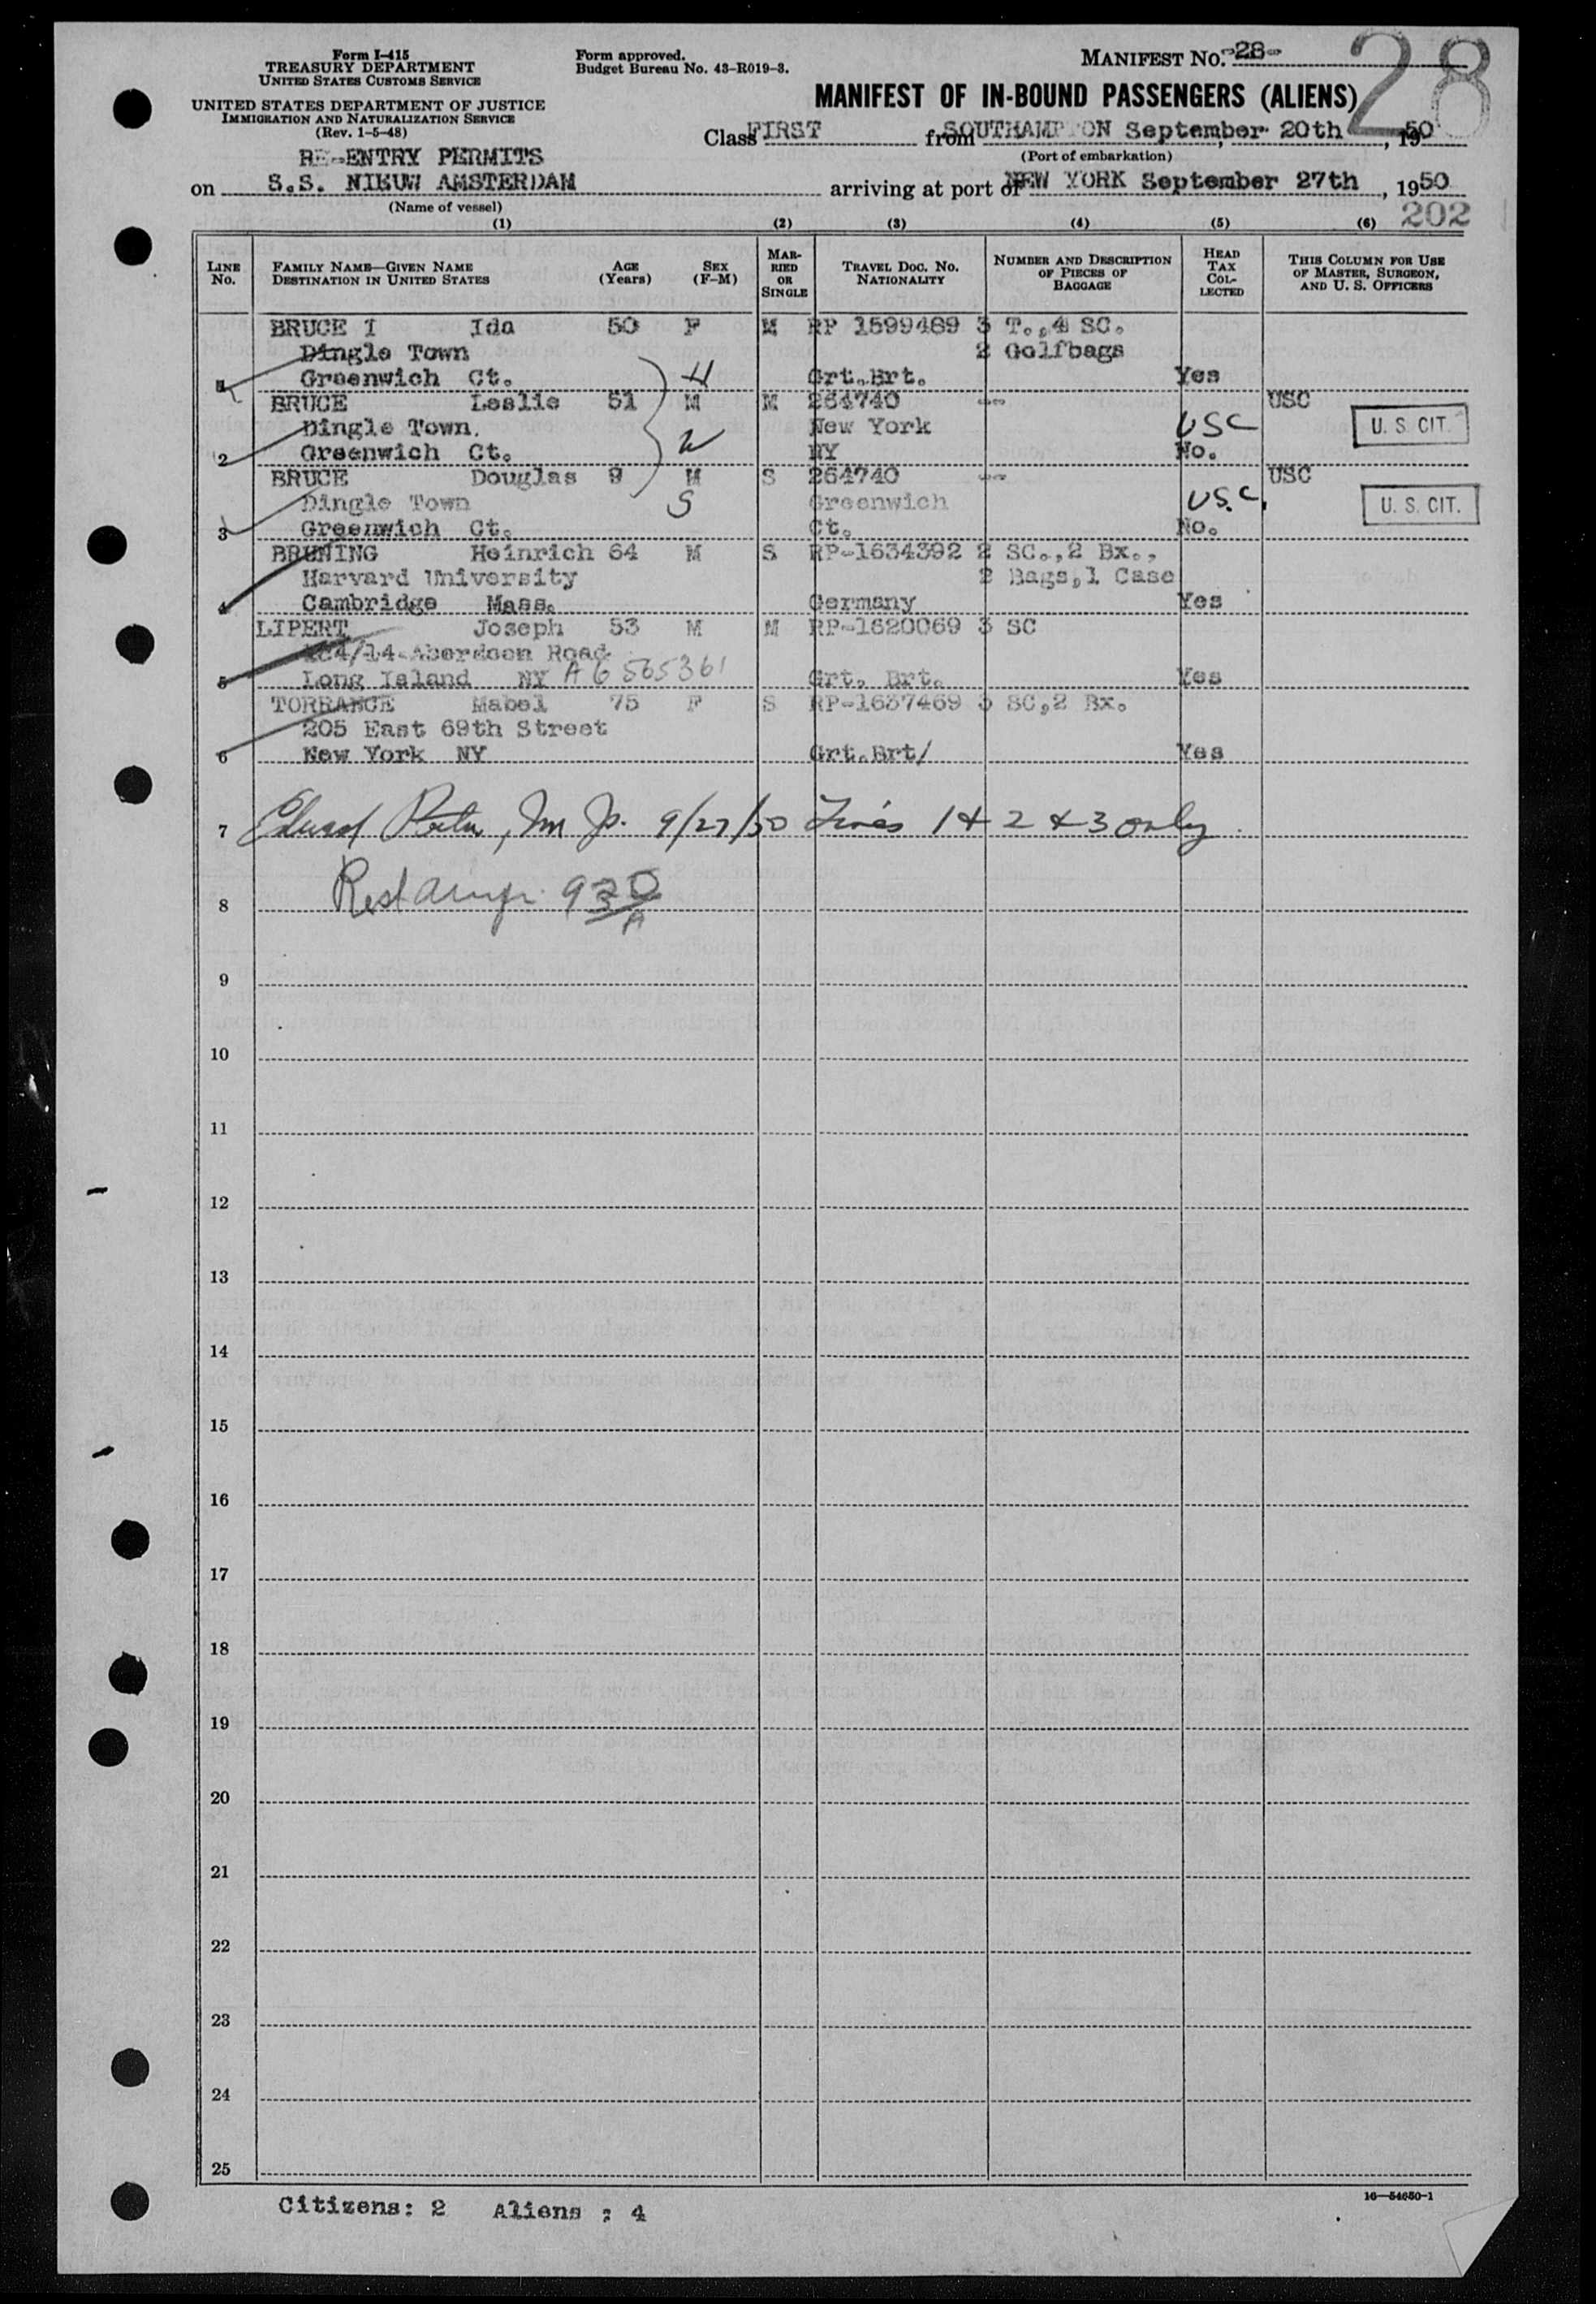 Form I-415
TREASURY DEPARTMENT
UNITED STATES CUSTOMS SERVICE
UNITED STATES DEPARTMENT OF JUSTICE
IMMIGRATION AND NATURALIZATION SERVICE
(Rev. 1-5-48)
Form approved.
Budget Bureau No. 43-R019-3.
MANIFEST NO. -28-
28
MANIFEST OF IN-BOUND PASSENGERS (ALIENS)
Class FIRST from SOUTHAMPTON September 20th, 1950
(Port of embarkation)
RE-ENTRY PERMITS
on S.S. NIEUW AMSTERDAM arriving at port of NEW YORK September 27th, 1950
(Name of vessel)
(1) (2) (3) (4) (5) (6) 202
LINE NO. FAMILY NAME—GIVEN NAME DESTINATION IN UNITED STATES AGE (Years) SEX (F-M) MARRIED OR SINGLE TRAVEL DOC. NO. NATIONALITY NUMBER AND DESCRIPTION OF PIECES OF BAGGAGE HEAD TAX COLLECTED THIS COLUMN FOR USE OF MASTER, SURGEON, AND U. S. OFFICERS
BRUCE I Ida 50 F M RP 1599489 3 T., 4 SC.
Dingle Town 2 Golfbags
1 Greenwich Ct. H Grt.Brt. Yes
BRUCE Leslie 51 M M 264740 -- USC
Dingle Town. New York USC U. S. CIT.
2 Greenwich Ct. W NY No.
BRUCE Douglas 9 M S 264740 -- USC
Dingle Town S Greenwich U.S.C. U. S. CIT.
3 Greenwich Ct. Ct. No.
BRUNING Heinrich 64 M S RP-1634392 2 SC.,2 Bx.,
Harvard University 2 Bags,1 Case
4 Cambridge Mass. Germany Yes
LIPERT Joseph 53 M M RP-1620069 3 SC
/14 Aberdeen Road
5 Long Island NY A6 565361 Grt. Brt. Yes
TORRANCE Mabel 75 F S RP-1637469 3 SC,2 Bx.
205 East 69th Street
6 New York NY Grt.Brt/ Yes
7 9/27/50 Lines 1 & 2 & 3 only
8 930 A
9
10
11
12
13
14
15
16
17
18
19
20
21
22
23
24
25
Citizens: 2 Aliens : 4
16—54650-1